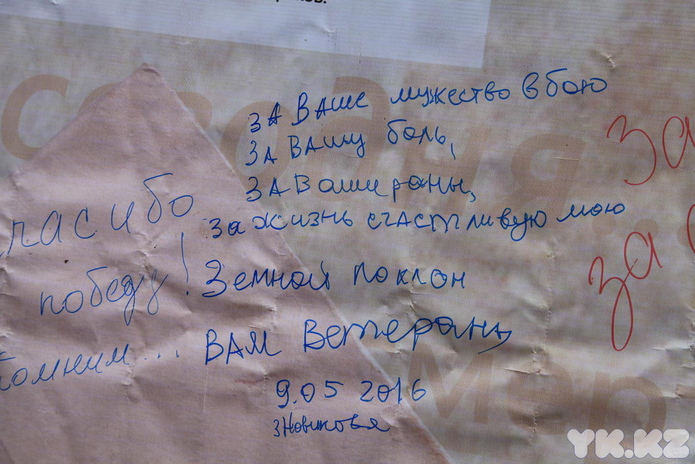 ЗА ВАШЕ мужество в бою
ЗА ВАШУ боль,
ЗА Ваши раны,
За жизнь счастливую мою
Земной поклон
ВАМ Ветераны
9.05 2016
Новикова
спасибо
победу!
помним...
за
за
YK.KZ